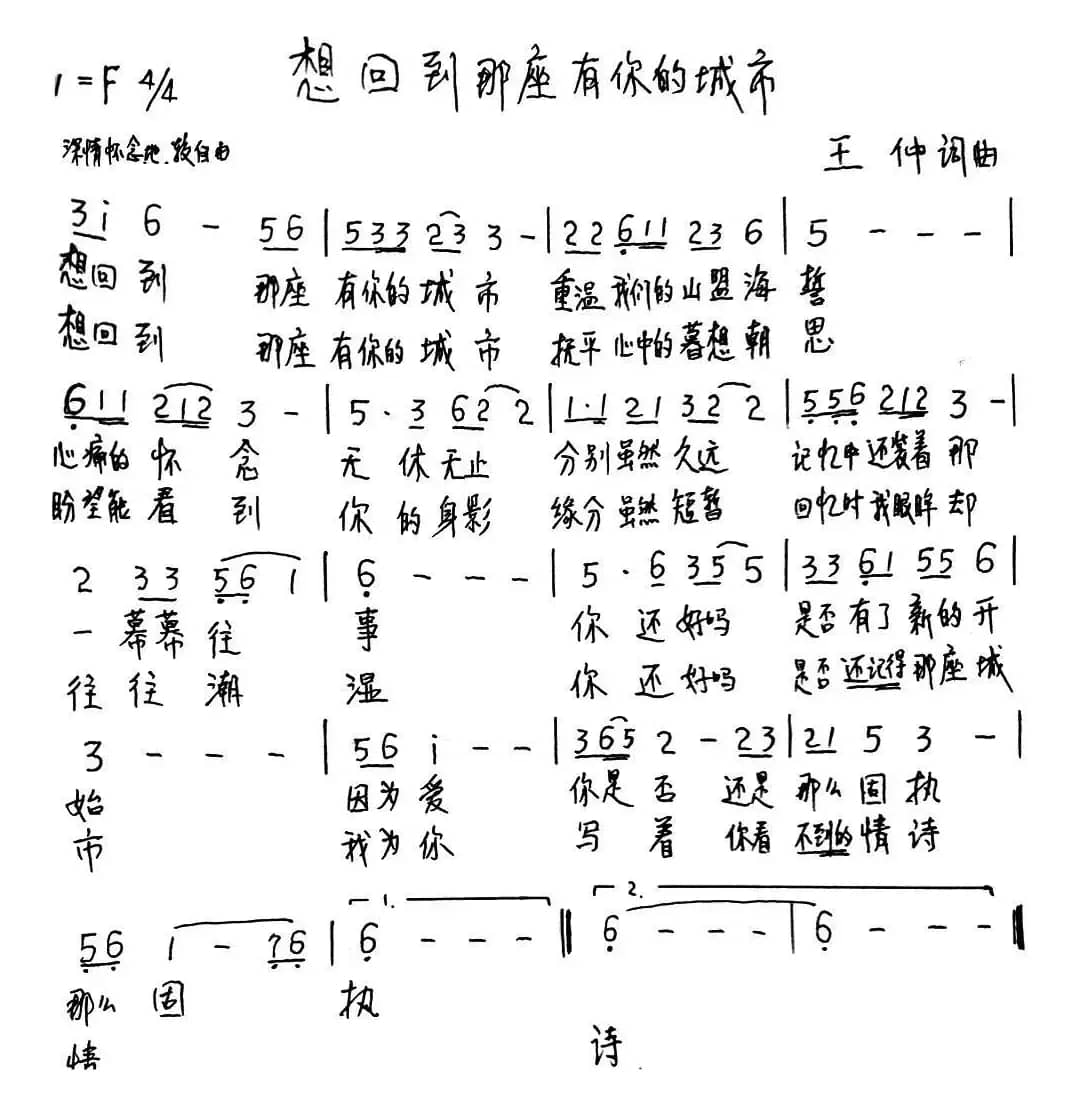 想回到那座有你的城市
1=F 4/4
深情怀念地、较自由
王 仲 词曲
3 i 6 - 5 6 | 5 3 3 2 3 3 - | 2 2 6 1 1 2 3 6 | 5 - - - |
想回到 那座 有你的城 市 重温我们的山盟海 誓
想回到 那座 有你的城 市 抚平心中的暮想朝 思
6 1 1 2 1 2 3 - | 5 · 3 6 2 2 | 1 · 1 2 1 3 2 2 | 5 5 6 2 1 2 3 - |
心痛的 怀 念 无 休无止 分别虽然久远 记忆中还装着 那
盼望能 看 到 你 的身影 缘分虽然短暂 回忆时我眼眸 却
2 3 3 5 6 1 | 6 - - - | 5 · 6 3 5 5 | 3 3 6 1 5 5 6 |
一 幕幕 往 事 你 还好吗 是否有了新的开
往 往 潮 湿 你 还好吗 是否还记得那座城
3 - - - | 5 6 i - - | 3 6 5 2 - 2 3 | 2 1 5 3 - |
始 因为爱 你是 否 还是 那么固 执
市 我为你 写 着 你看 不到的情 诗
5 6 1 - 7 6 | 1. 6 - - - ‖ 2. 6 - - - | 6 - - - ‖
那么 固 执
情 诗